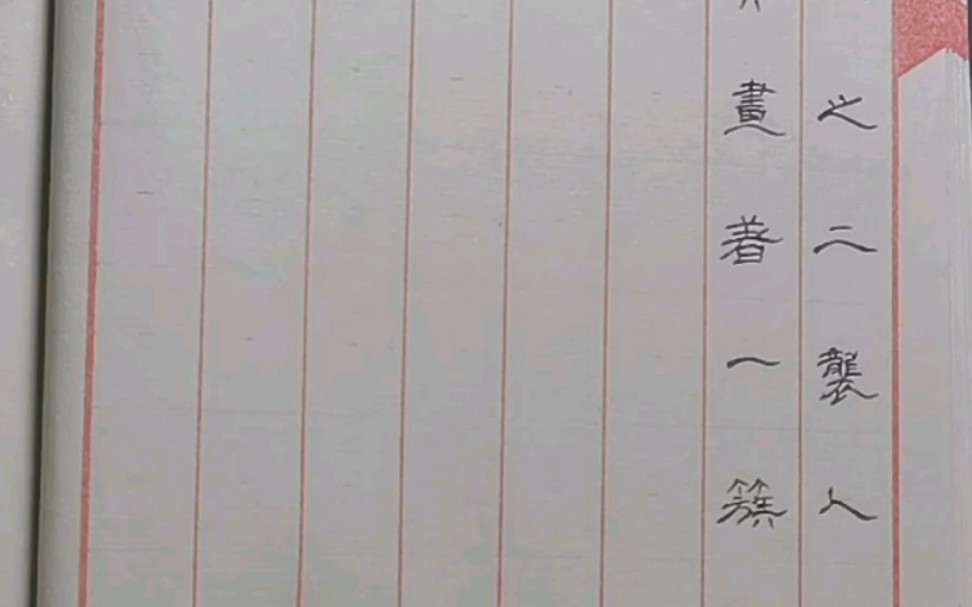 之二襲人
畫着一簇